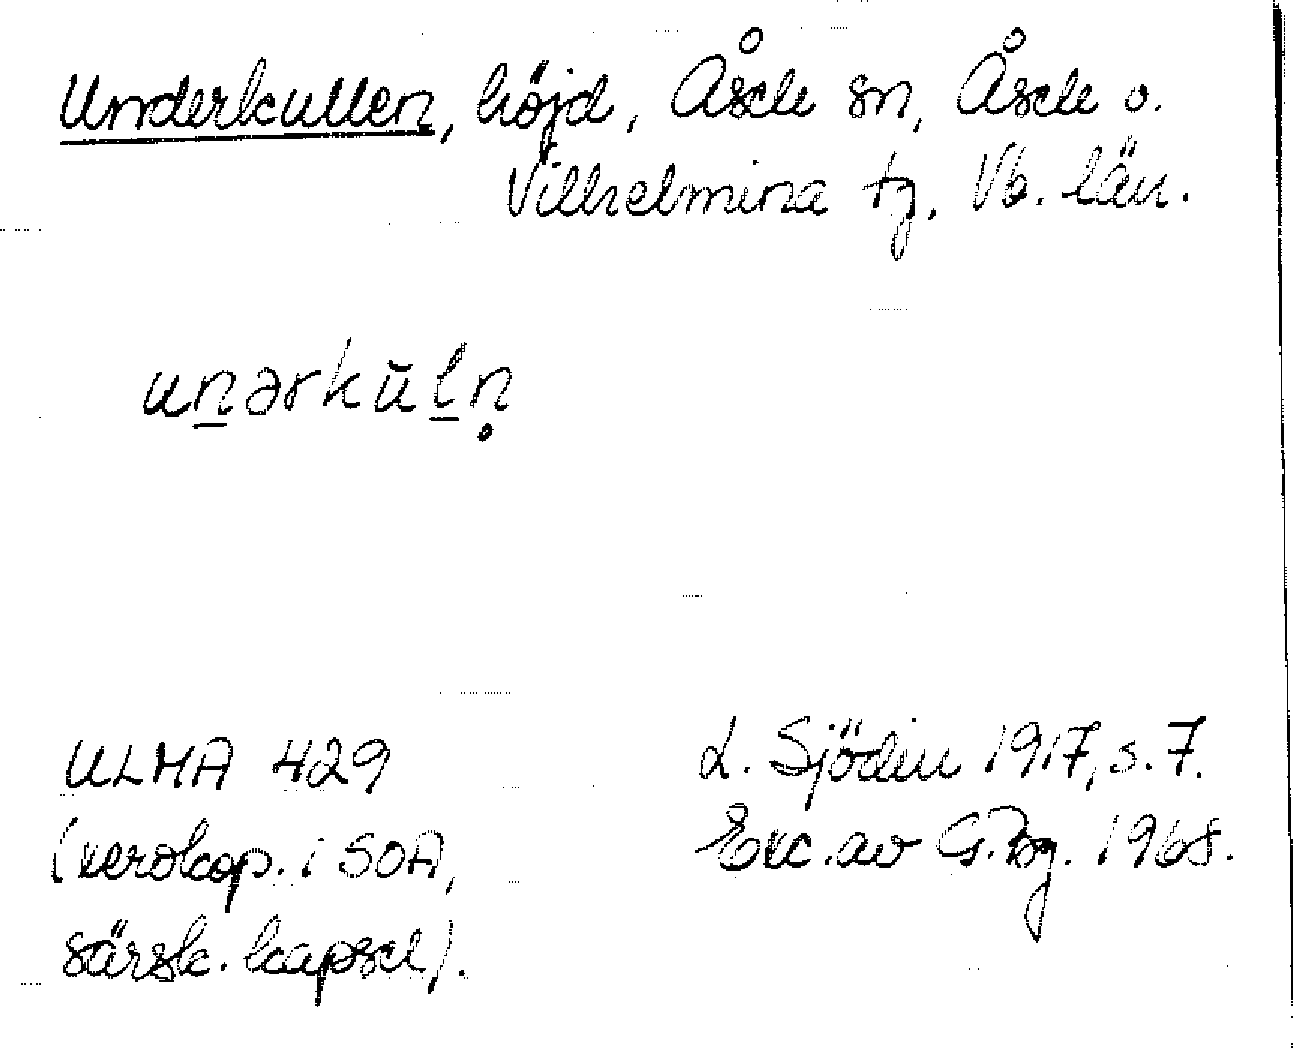 Underkullen, höjd, Åsele sn, Åsele o.
Vilhelmina tg, Vb. län.
un̲ərkŭl̲ṇ
ULMA 429
(xerokop. i SOA,
särsk. kapsel).
L. Sjödin 1917, s. 7.
Exc. av G. Bg. 1968.